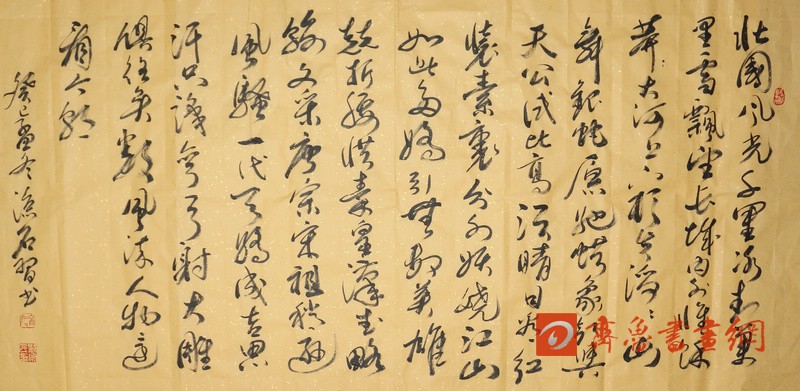 北國风光千里冰封万
里雪飄望长城内外惟余
莽莽大河上下顿失滔滔山
舞銀蛇原驰蜡象欲與
天公试比高须晴日看红
装素裹分外妖娆江山
如此多娇引無數英雄
競折腰惜秦皇漢武略
输文采唐宗宋祖稍逊
風騷一代天骄成吉思
汗只識弯弓射大雕
俱往矣數風流人物還
看今朝
癸巳孟冬石習书
齊魯書畫網